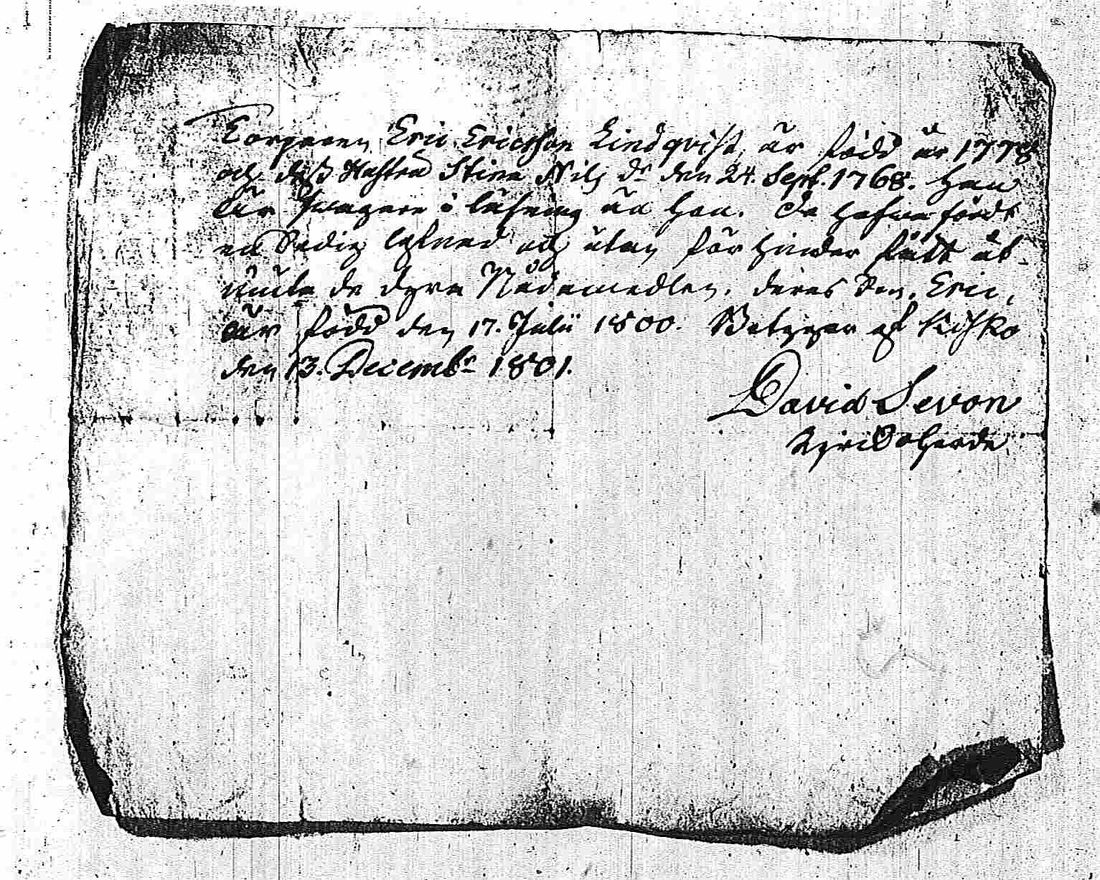 Torparen, Eric Ericsson Lindqvist, är född år 1778
och dess Hustru Stina Nils dr den 24. Sept. 1768. Han
är swagare i läsning än hon. De hafva fördt
en sedig lefnad och utan förhinder fådt åt-
niuta de dyra Nådemedlen. deras Son, Eric,
är född den 17. Julii 1800. Betygar af Kisko
den 13. Decembr 1801.
David Sevon
Kyrkoherde